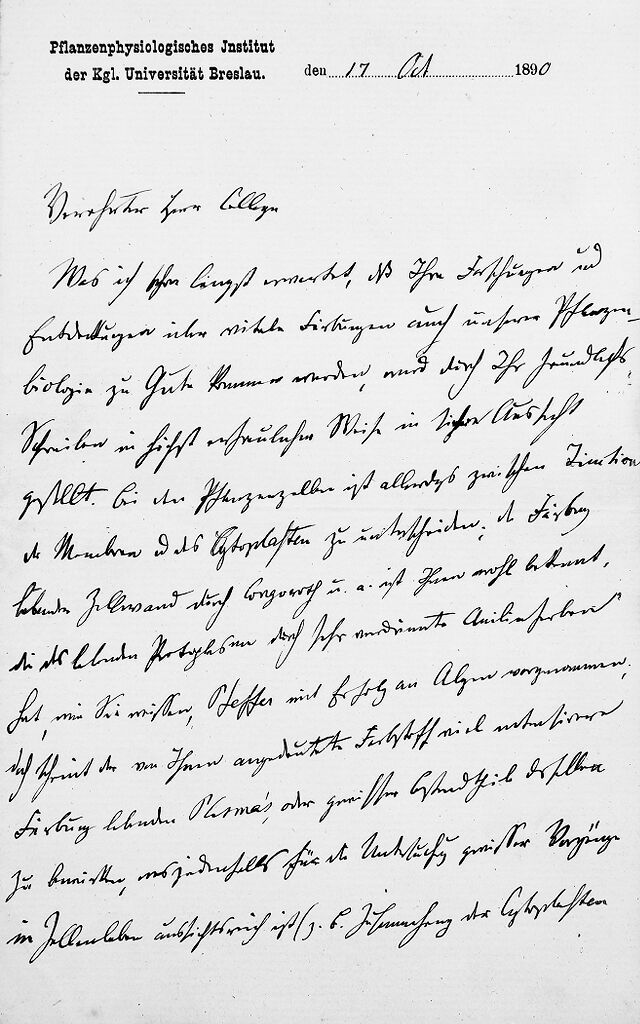 Pflanzenphysiologisches Institut
der Kgl. Universität Breslau.
den 17 Oct 1890
Verehrter Herr College
Was ich schon längst erwartet, daß Ihre Forschungen und
Entdeckungen über vitale Färbungen auch unserer Pflanzen-
biologie zu Gute kommen werden, wird durch Ihr freundliches
Schreiben in höchst erfreulicher Weise in sichere Aussicht
gestellt. Bei den Pflanzenzellen ist allerdings zwischen Tinction
der Membran und des Cytoplasten zu unterscheiden; die Färbung
lebender Zellwand durch Congoroth u. a. ist Ihnen wohl bekannt,
die des lebenden Protoplasma durch sehr verdünnte Anilinfarben
hat, wie Sie wissen, Pfeffer mit Erfolg an Algen vorgenommen;
doch scheint der von Ihnen angedeutete Farbstoff viel intensivere
Färbung lebenden Plasma's, oder gewisser Bestandtheile desselben
zu bewirken, was jedenfalls für die Untersuchung gewisser Vorgänge
im Zellenleben aussichtsreich ist (z. B. der Cytoplasten